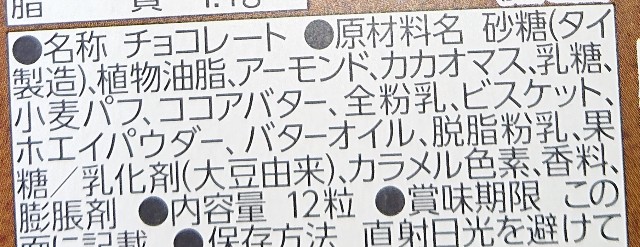 脂 質
●名称 チョコレート ●原材料名 砂糖(タイ
製造)、植物油脂、アーモンド、カカオマス、乳糖、
小麦パフ、ココアバター、全粉乳、ビスケット、
ホエイパウダー、バターオイル、脱脂粉乳、果
糖/乳化剤(大豆由来)、カラメル色素、香料、
膨脹剤 ●内容量 12粒 ●賞味期限 この
面に記載 ●保存方法 直射日光を避けて